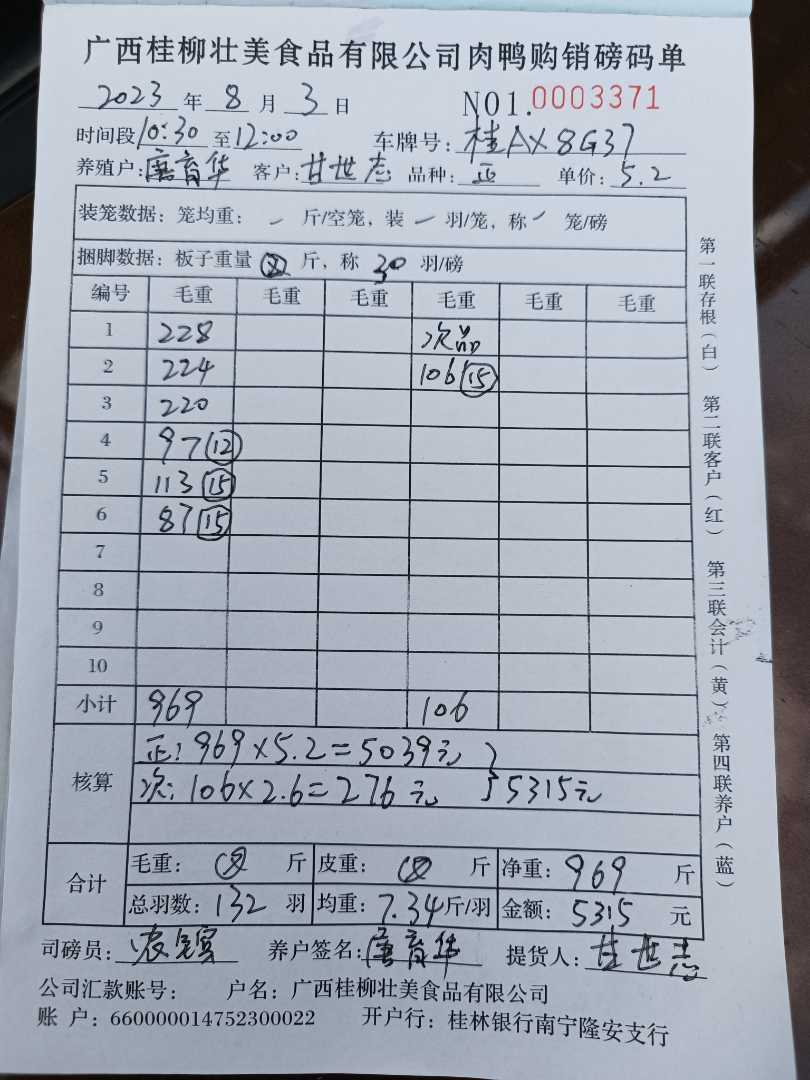 广西桂柳壮美食品有限公司肉鸭购销磅码单
2023年 8月 3日 NO1.0003371
时间段10:30至12:00 车牌号:桂AX8G37
养殖户:唐育华 客户:甘世志 品种:正 单价:5.2
装笼数据:笼均重: - 斤/空笼,装 - 羽/笼,称 - 笼/磅
捆脚数据:板子重量 斤,称 30 羽/磅
编号 毛重 毛重 毛重 毛重 毛重 毛重
1 228 次品
2 224 106(15)
3 220
4 97(12)
5 113(15)
6 87(15)
7
8
9
10
小计 969 106
核算
正:969×5.2=5039元
次:106×2.6=276元 }5315元
合计
毛重: 斤 皮重: 斤 净重:969斤
总羽数:132羽 均重:7.34斤/羽 金额:5315元
司磅员: 养户签名:唐育华 提货人:甘世志
公司汇款账号: 户名:广西桂柳壮美食品有限公司
账 户:660000014752300022 开户行:桂林银行南宁隆安支行
第一联存根(白) 第二联客户(红) 第三联会计(黄) 第四联养户(蓝)